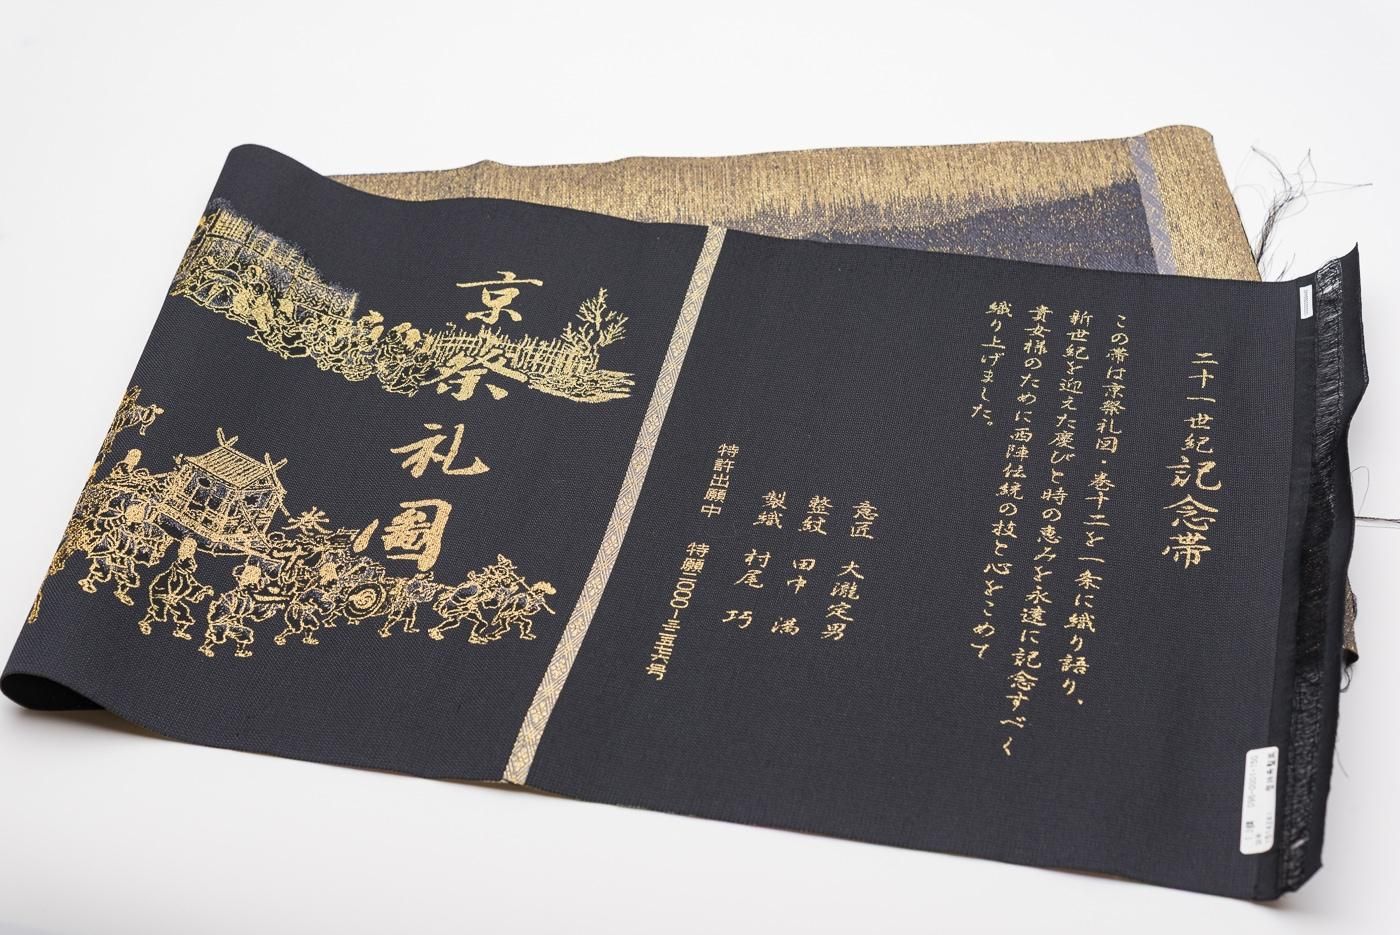 二十一世紀記念帯
この帯は京祭礼図・巻十二を一条に織り語り、
新世紀を迎えた慶びと時の恵みを永遠に記念すべく
貴女様のために西陣伝統の技と心をこめて
織り上げました。
意匠 大瀧定男
整紋 田中 満
製織 村尾 巧
特許出願中 特願二〇〇〇-三二五七六号
京祭礼圖